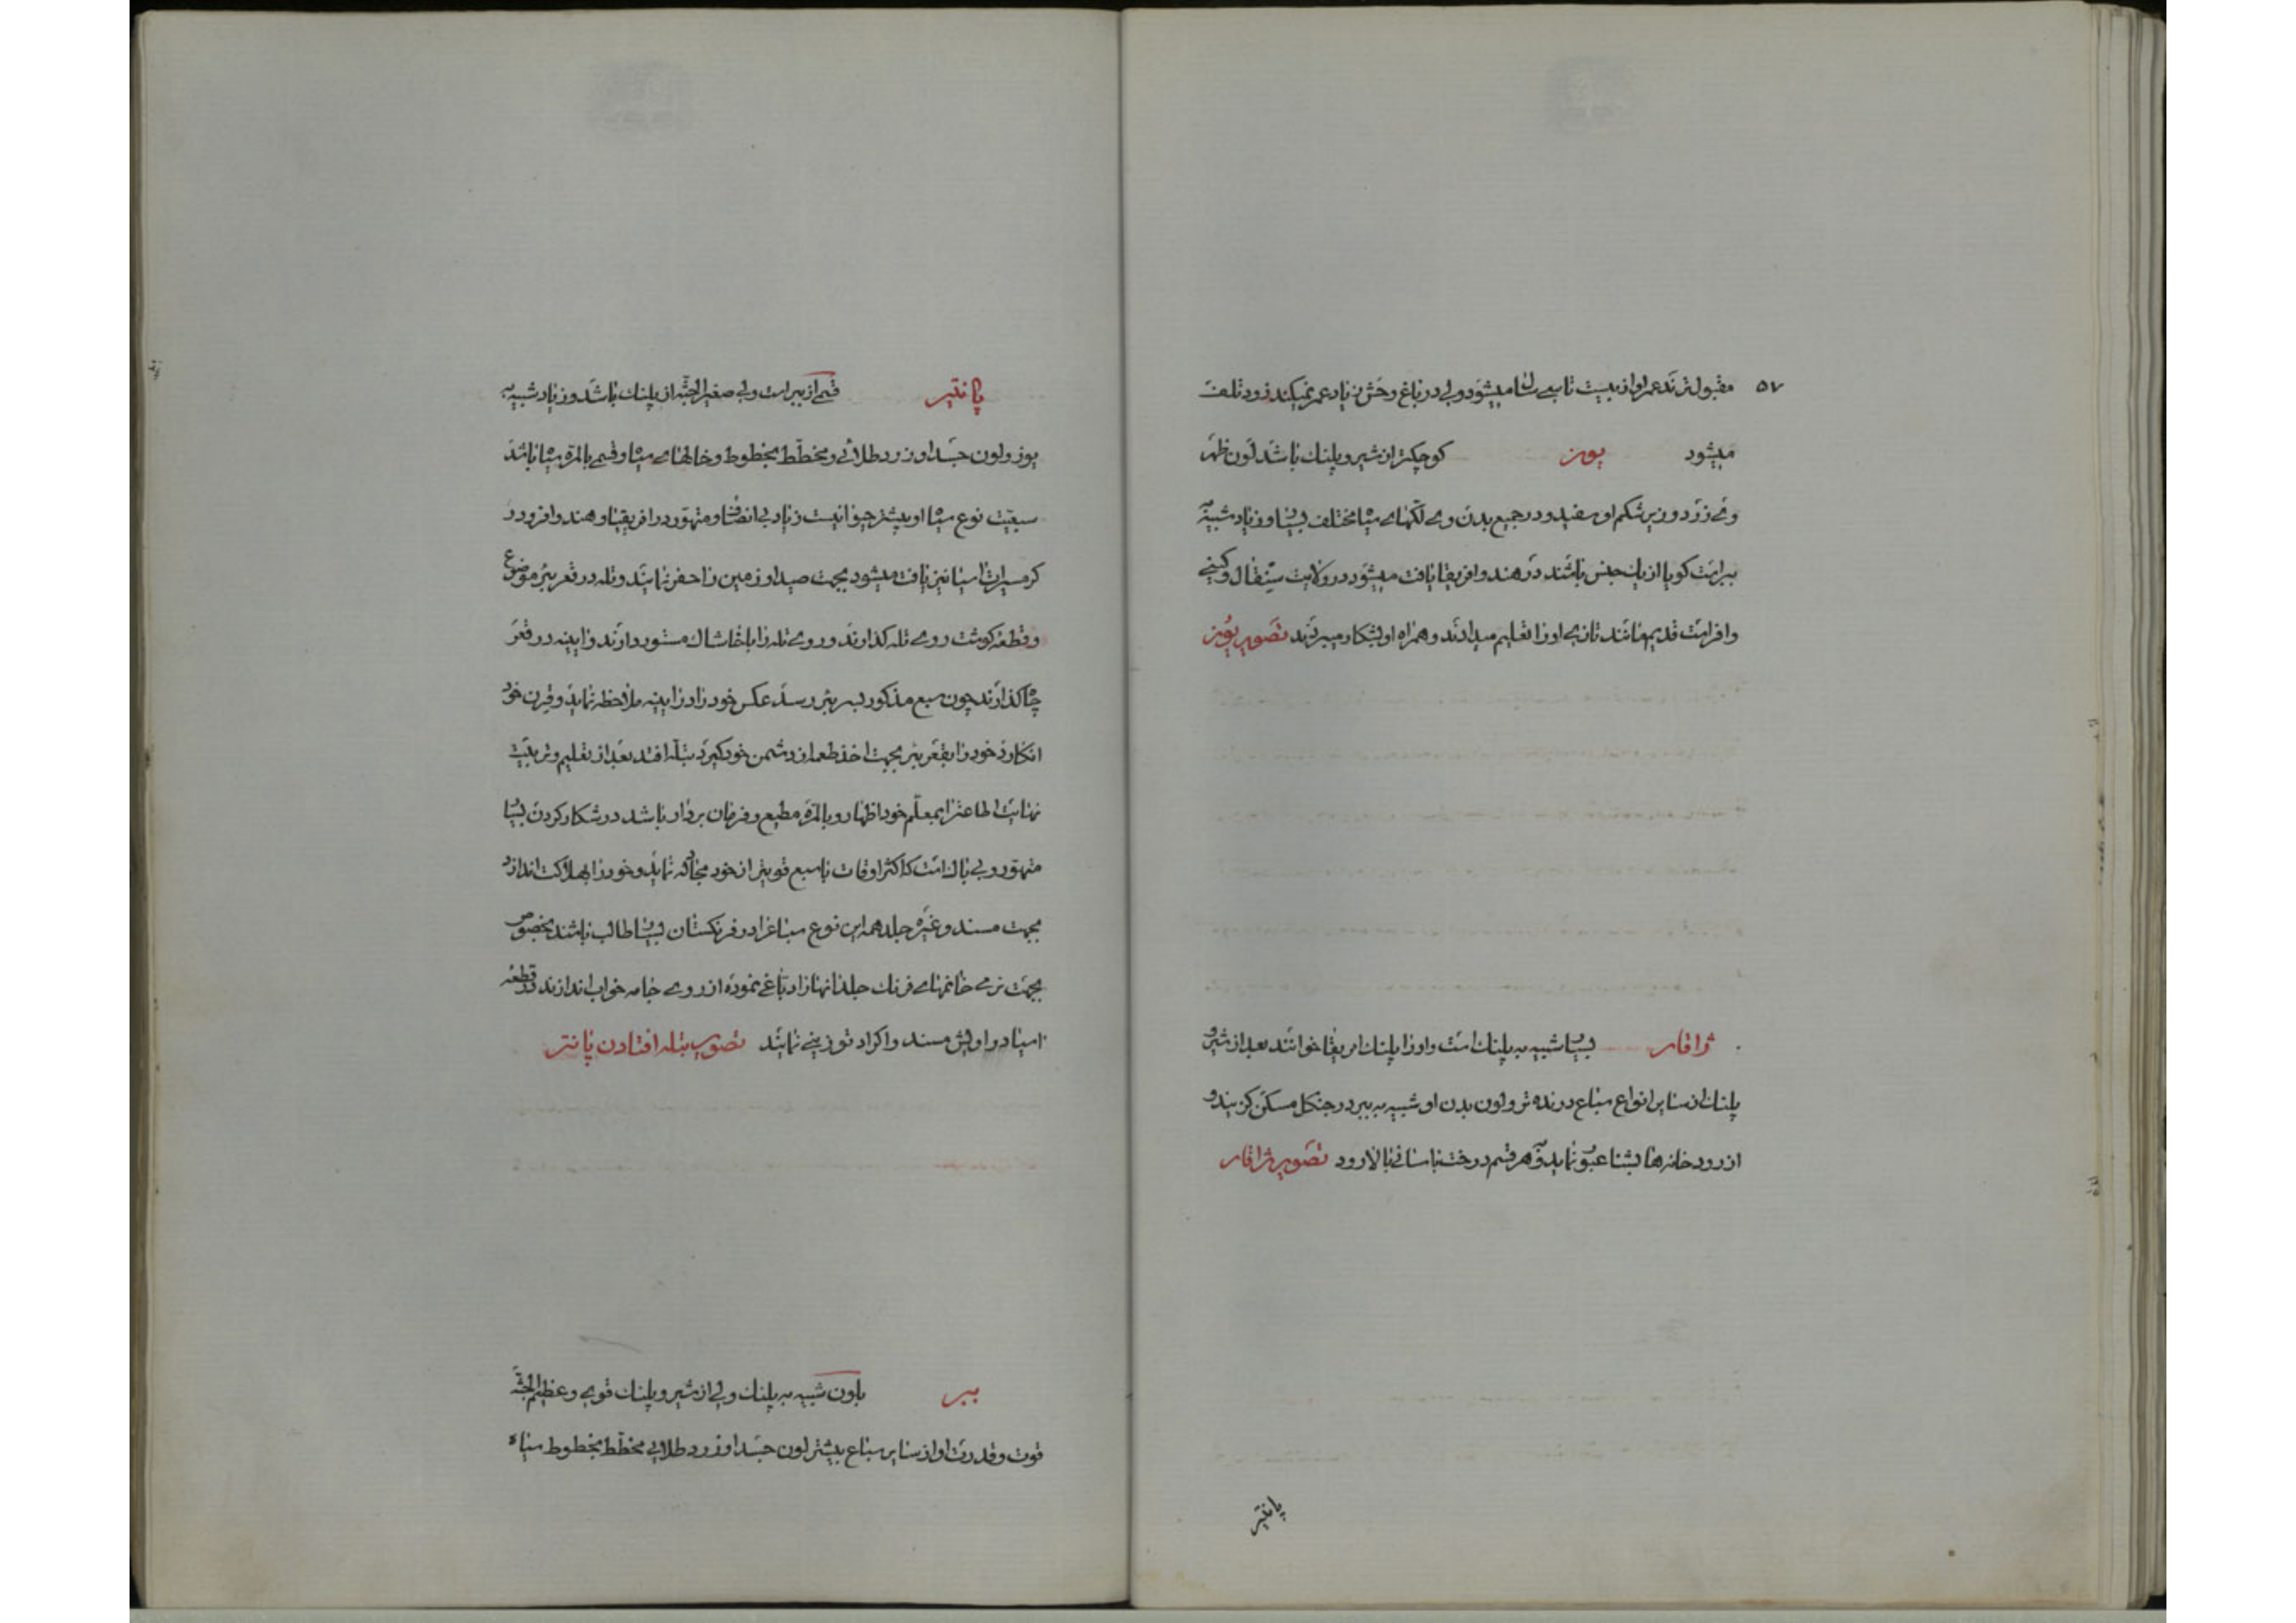 ۵۷ مقبول ترند عمر او از بیست تا سی سال میشود ولی در باغ وحش زیاد عمر نمیکند زود تلف
میشود یوز کوچکتر از شیر و پلنک باشد لون ظهر
وی زرد و زیر شکم او سفید و در جمیع بدن وی لکهای سیاه مختلف بسیار و زیاد شبیه
ببر است کویا از یک جنس باشند در هند و افریقا یافت میشود در ولایت سنقال و کینی
وافر است قدیم مانند تازی او را تعلیم میدادند و همراه او بشکار میبردند تصویر یوز
ژاقار بسیار شبیه به پلنک است و او را پلنک امریقا خوانند بعد از شیر و
پلنک از سایر انواع سباع درنده تر و لون بدن او شبیه به ببر در جنکل مسکن کزیند و
از رودخانه ها بشنا عبور نماید و بهر قسم درخت باسانی بالا رود تصویر ژاقار
پانتیر
پانتیر قسمی از ببر است ولی صغیر الجثه از پلنک باشد و زیاد شبیه به
یوز و لون جسد او زرد طلائی و مخطط بخطوط و خالهای سیاه و قسمی بالمره سیاه باشد
سبعیت نوع سیاه او بیشتر حیوانیست زیاد بی انصاف و متهور در افریقا و هند وافر و در
کرمسیرات اسیا نیز یافت میشود بجهت صید او زمین را حفر نمایند و تله در قعر بئر موضوع
و قطعه کوشت روی تله کذارند و روی تله را با خاشاک مستور دارند و اینه در قعر
چاه کذارند چون سبع مذکور بسر بئر رسد عکس خود را در اینه ملاحظه نماید و قرن خود
انکارد خود را بقعر بئر بجهت اخذ طعمه از دشمن خود کیرد بتله افتد بعد از تعلیم و تربیت
نهایت اطاعت را بمعلم خود اظهار و بالمره مطیع و فرمان بردار باشد در شکار کردن بسیار
متهور و بی باک است که اکثر اوقات با سبع قویتر از خود مجادله نماید و خود را بهلاکت اندازد
بجهت مسند و غیره جلد همه این نوع سباع را در فرنکستان بسیار طالب باشند بخصوص
بجهت نرمی خانمهای فرنک جلد انها را دباغی نموده از روی جامه خواب اندازند در قطعه
اسیا دراویش مسند و اکراد توزینی نمایند تصویر بتله افتادن پانتر
ببر باون شبیه به پلنک ولی از شیر و پلنک قوی و عظیم الجثه
قوت و قدرت او از سایر سباع بیشتر لون جسد او زرد طلایی مخطط بخطوط سیاه